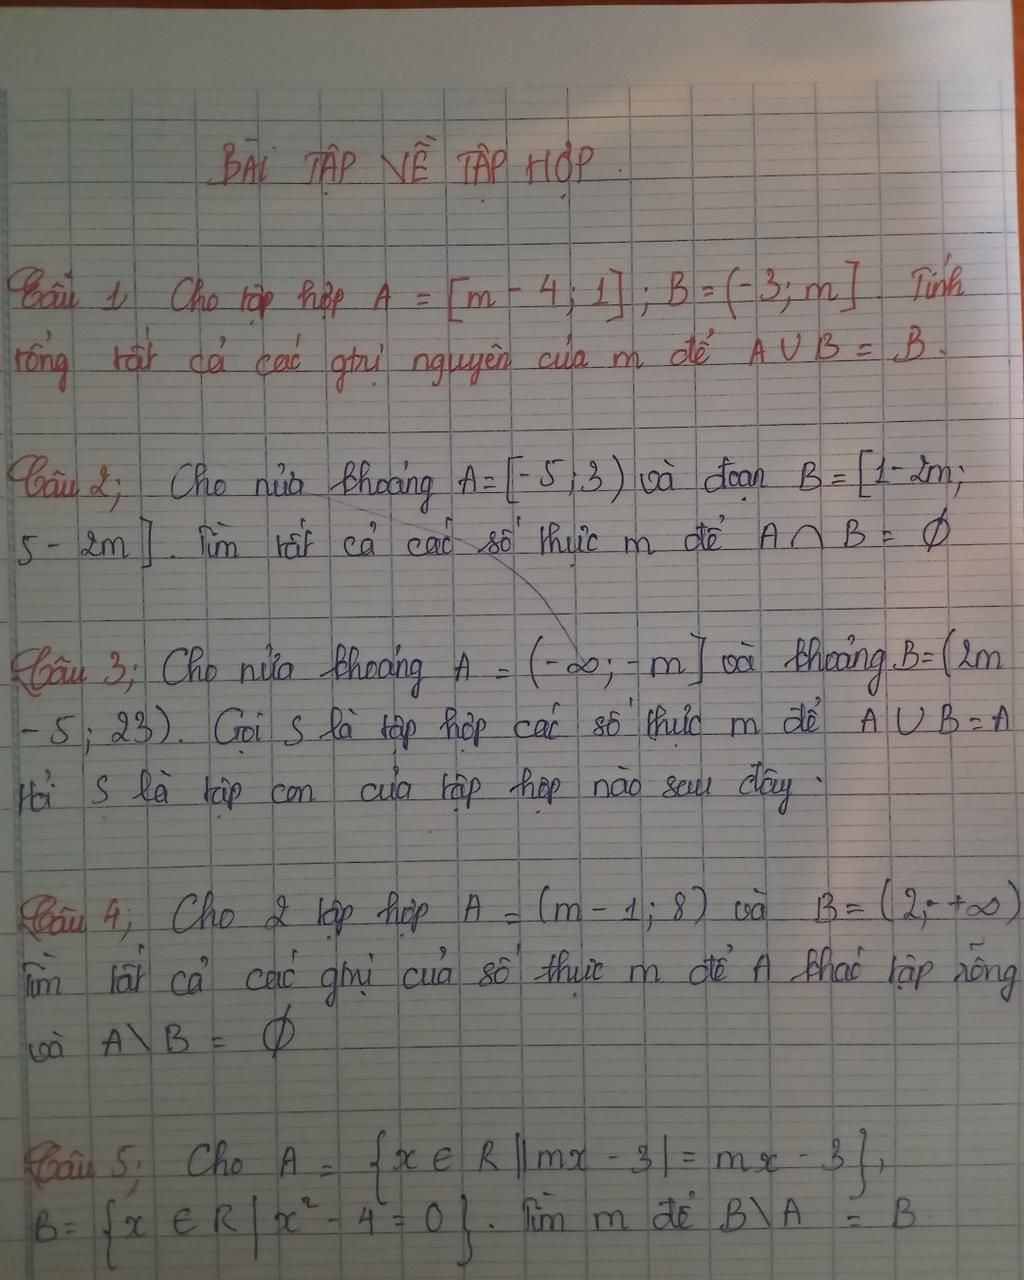 BÀI TẬP VỀ TẬP HỢP.
Câu 1, Cho tập hợp A = [m - 4; 1]; B = (-3; m] Tính
tổng tất cả các gtrị nguyên của m để A ∪ B = B.
Câu 2; Cho nửa khoảng A = [-5; 3) và đoạn B = [1 - 2m;
5 - 2m]. Tìm tất cả các số thực m để A ∩ B = ∅
Câu 3; Cho nửa khoảng A = (-∞; -m] và khoảng B = (2m
- 5; 23). Gọi S là tập hợp các số thực m để A ∪ B = A
Hỏi S là tập con của tập hợp nào sau đây.
Câu 4; Cho 2 tập hợp A = (m - 1; 8) và B = (2; +∞)
Tìm tất cả các gtrị của số thực m để A khác tập rỗng
và A \ B = ∅
Câu 5; Cho A = {x ∈ R | |mx - 3| = mx - 3},
B = {x ∈ R | x² - 4 = 0}. Tìm m để B \ A = B